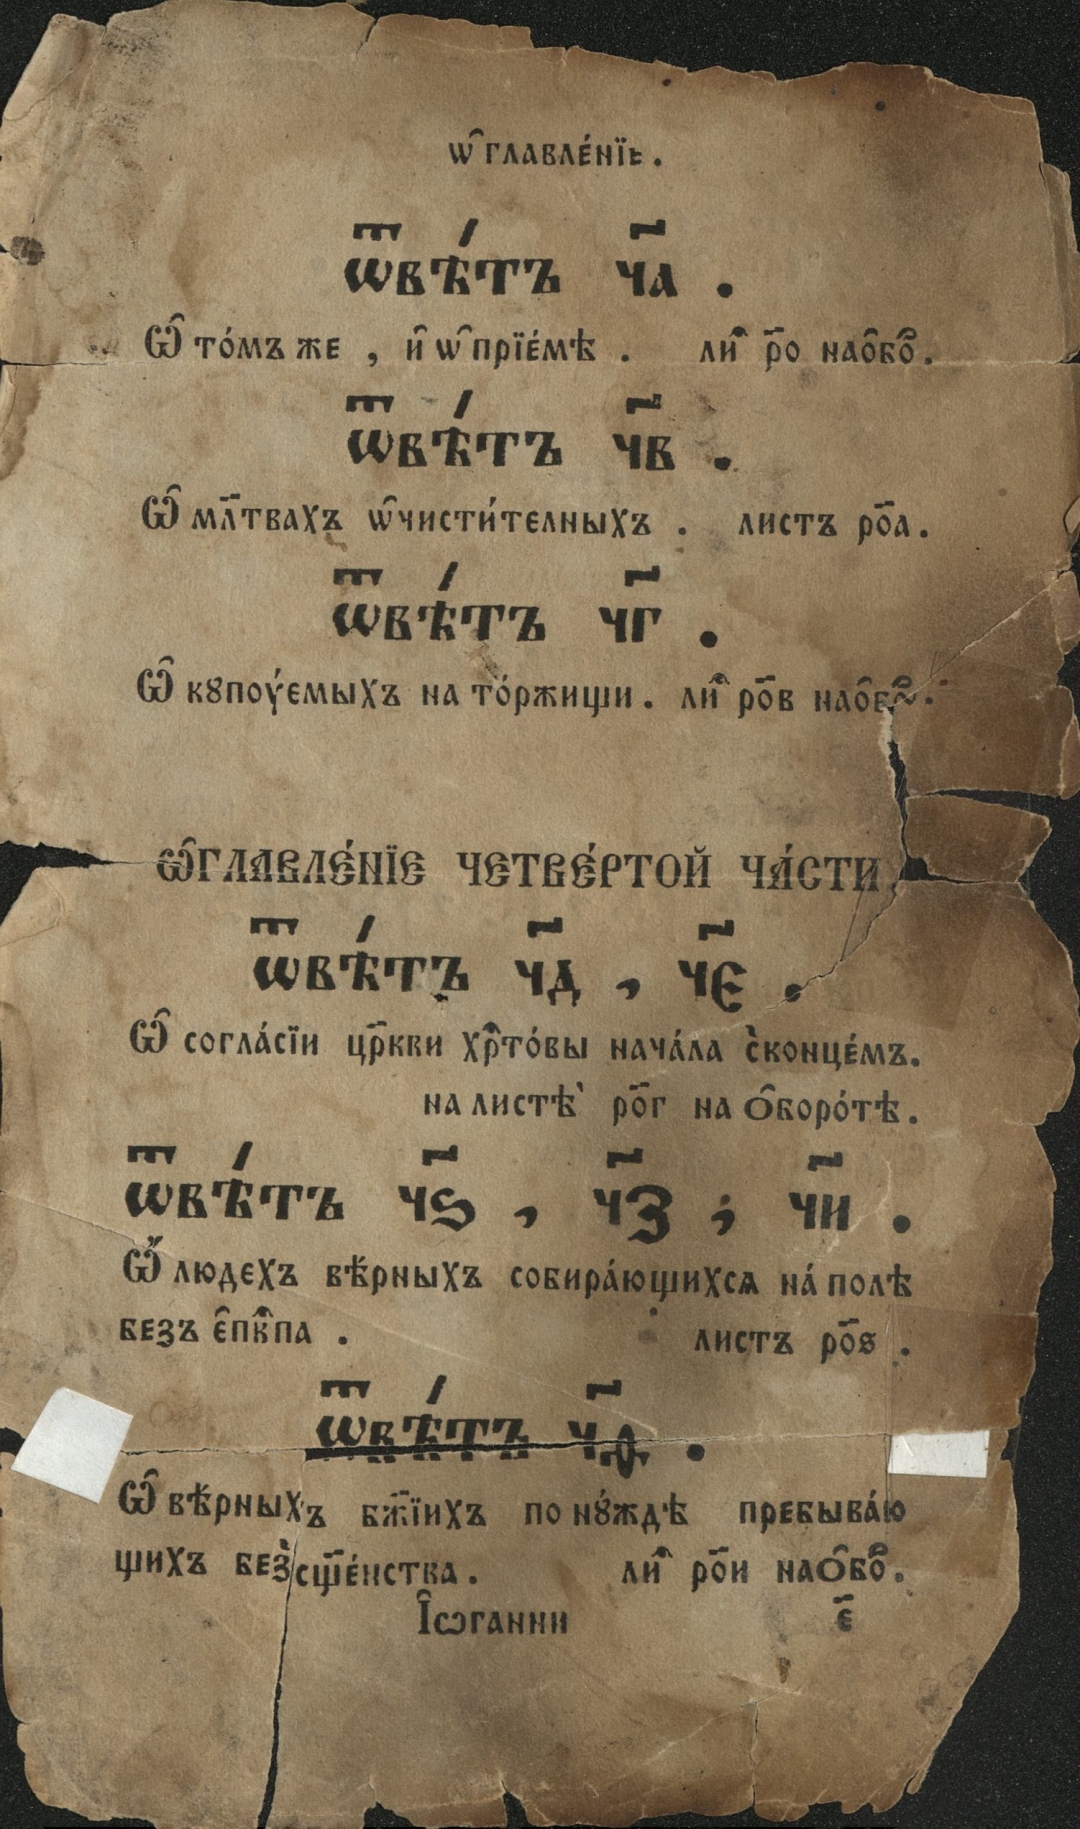 ѡ҆главле́нїе.
ѿвѣ́тъ ч҃а .
Ѡ҆ то́мъ же , и҆ ѡ҆ прїе́мѣ . лиⷭ҇ р҃о наѻ҆боⷪ҇.
ѿвѣ́тъ ч҃в .
Ѡ҆ мл҃твахъ ѡ҆чисти́телныхъ . листъ ро҃а.
ѿвѣ́тъ ч҃г .
Ѡ҆ кꙋпоꙋ́емыхъ на то́ржищи. лиⷭ҇ ро҃в
ѡ҆главле́нїе четве́ртой ча́сти
ѿвѣ́тъ ч҃д , ч҃є .
Ѡ҆ согла́сїи цр҃кви хрⷭ҇то́вы нача́ла с̾конце́мъ.
на листѣ̀ ро҃г на ѻ҆боро́тѣ.
ѿвѣ́тъ ч҃ѕ , ч҃з , ч҃и .
Ѡ҆ людехъ вѣ́рныхъ собира́ющихсѧ на́ полѣ
безъ є҆пкⷭ҇па . листъ ро҃ѕ .
ѿвѣ́тъ ч҃ѳ .
Ѡ҆ вѣ́рныхъ бж҃їихъ по нꙋ́ждѣ пребыва́ю
щихъ без̾сщ҃е́нства. лиⷭ҇ ро҃и наѻ҆боⷪ҇.
І҆ѡганни є҃